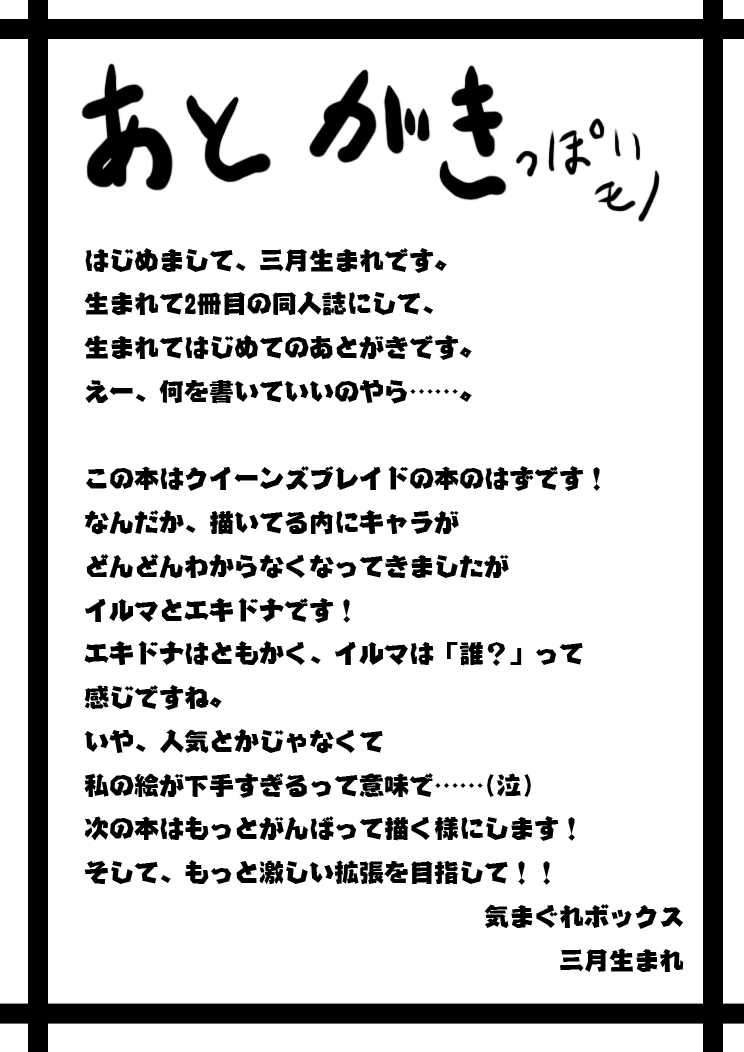 あとがきっぽい
モノ
はじめまして、三月生まれです。
生まれて2冊目の同人誌にして、
生まれてはじめてのあとがきです。
えー、何を書いていいのやら……。
この本はクイーンズブレイドの本のはずです！
なんだか、描いてる内にキャラが
どんどんわからなくなってきましたが
イルマとエキドナです！
エキドナはともかく、イルマは「誰？」って
感じですね。
いや、人気とかじゃなくて
私の絵が下手すぎるって意味で……(泣)
次の本はもっとがんばって描く様にします！
そして、もっと激しい拡張を目指して！！
気まぐれボックス
三月生まれ